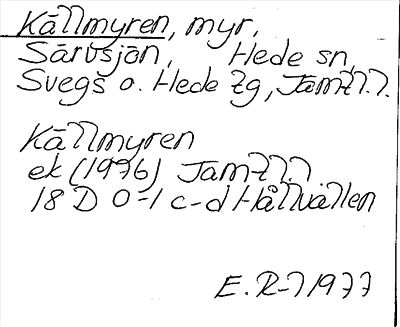 Källmyren, myr,
Särvsjön, Hede sn,
Svegs o. Hede tg, Jämtl.l.
Källmyren
ek (1976) Jämtl l.
18 D 0-1 c-d Hållvallen
E. R-l 1977